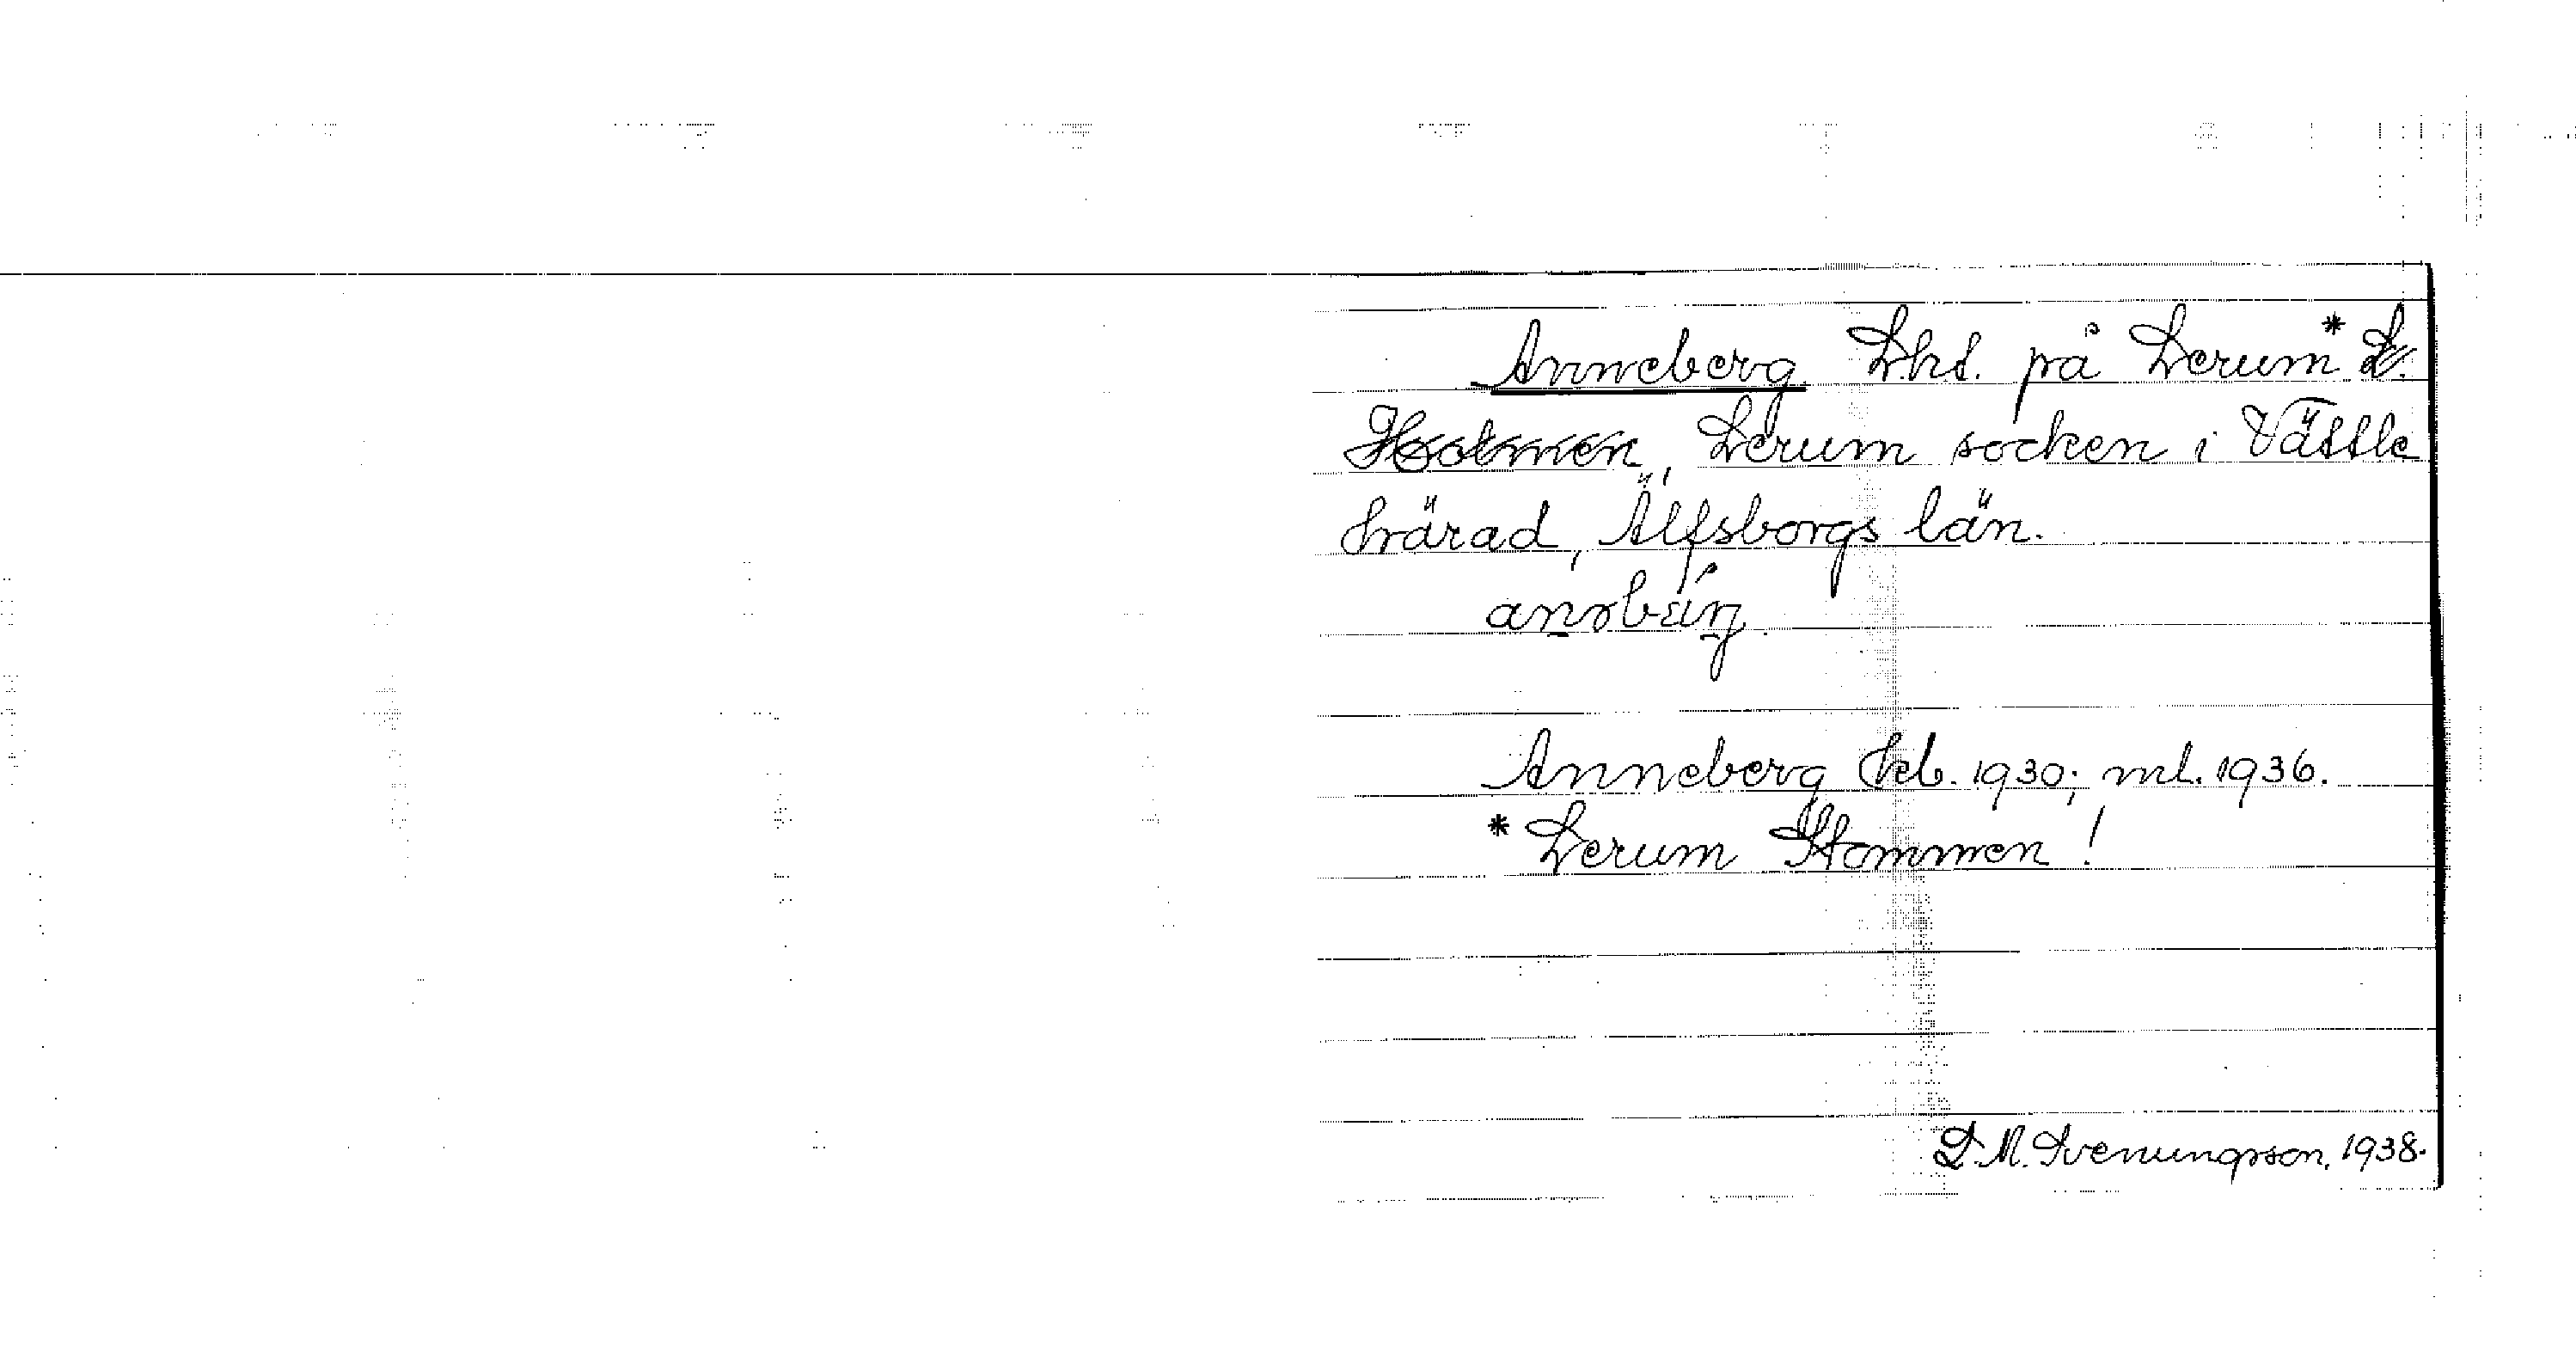 Anneberg Lht. på Lerum* L.
Holmen, Lerum socken i Vättle
härad, Älfsborgs län.
Anneberg kb. 1930; ml. 1936.
* Lerum Stommen!
D. M. Svenungsson, 1938.